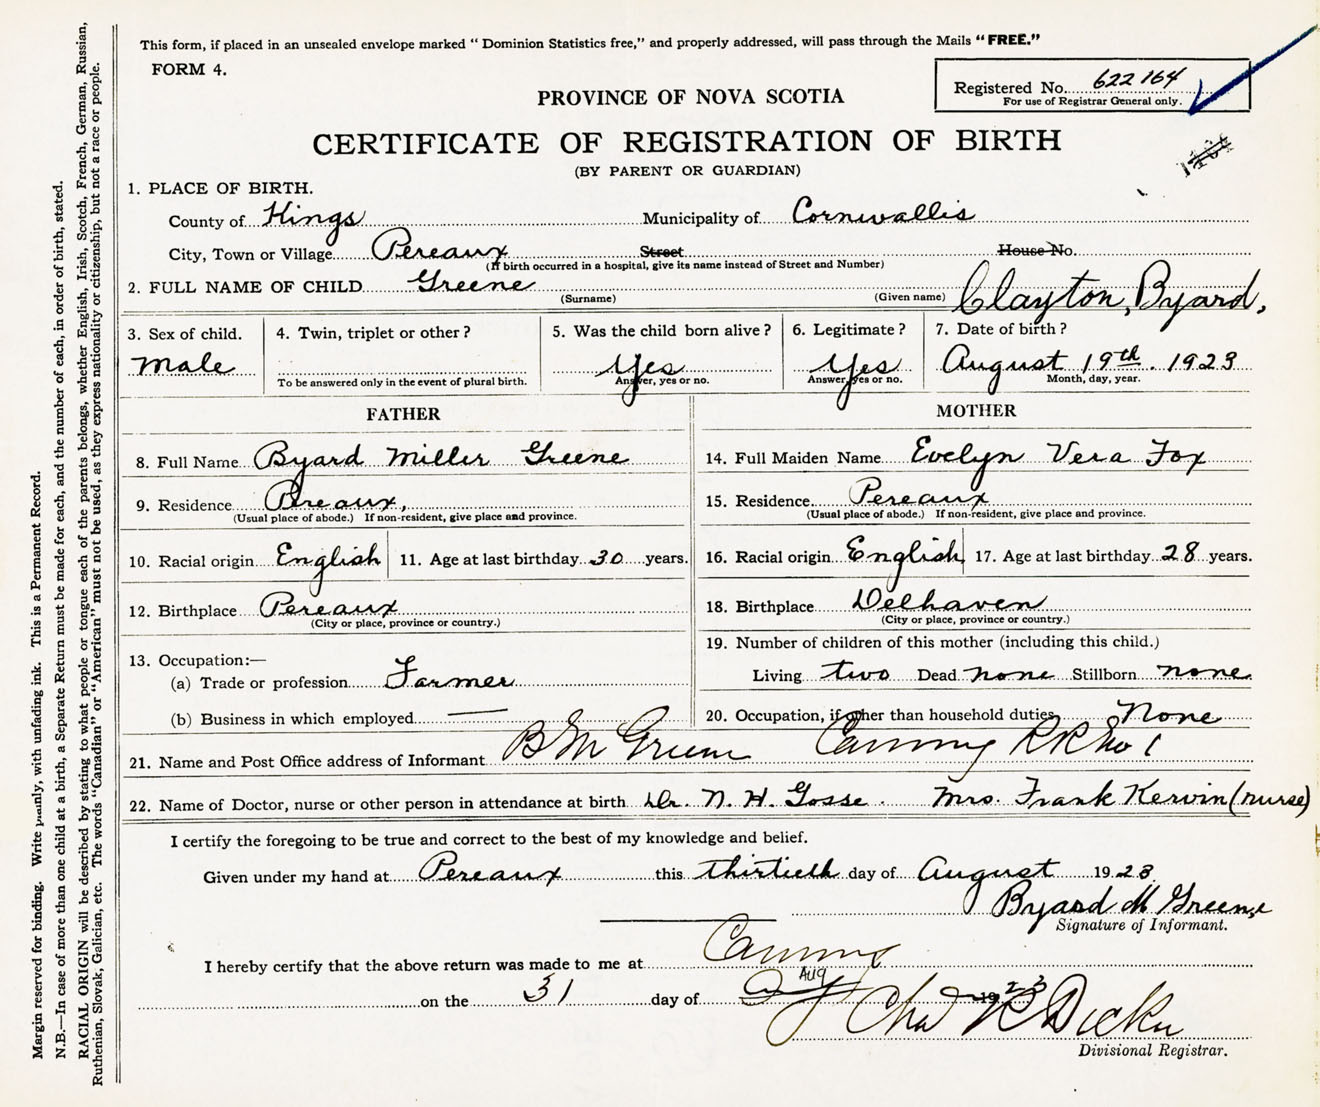 This form, if placed in an unsealed envelope marked "Dominion Statistics free," and properly addressed, will pass through the Mails "FREE."
FORM 4.
Registered No. 622164
For use of Registrar General only.
PROVINCE OF NOVA SCOTIA
CERTIFICATE OF REGISTRATION OF BIRTH
(BY PARENT OR GUARDIAN)
1. PLACE OF BIRTH.
County of Kings Municipality of Cornwallis
City, Town or Village Pereaux Street House No.
(If birth occurred in a hospital, give its name instead of Street and Number)
2. FULL NAME OF CHILD Greene (Surname) (Given name) Clayton, Byard,
3. Sex of child. 4. Twin, triplet or other? 5. Was the child born alive? 6. Legitimate? 7. Date of birth?
Male Yes Yes August 19th. 1923
To be answered only in the event of plural birth. Answer, yes or no. Answer, yes or no. Month, day, year.
FATHER
8. Full Name Byard Miller Greene
9. Residence Pereaux,
(Usual place of abode.) If non-resident, give place and province.
10. Racial origin English 11. Age at last birthday 30 years.
12. Birthplace Pereaux
(City or place, province or country.)
13. Occupation:—
(a) Trade or profession Farmer
(b) Business in which employed —
MOTHER
14. Full Maiden Name Evelyn Vera Fox
15. Residence Pereaux
(Usual place of abode.) If non-resident, give place and province.
16. Racial origin English 17. Age at last birthday 28 years.
18. Birthplace Delhaven
(City or place, province or country.)
19. Number of children of this mother (including this child.)
Living two Dead none Stillborn none
20. Occupation, if other than household duties None
21. Name and Post Office address of Informant B M Greene Canning RR No 1
22. Name of Doctor, nurse or other person in attendance at birth Dr. N. H. Gosse. Mrs. Frank Kervin (nurse)
I certify the foregoing to be true and correct to the best of my knowledge and belief.
Given under my hand at Pereaux this thirtieth day of August 1923.
Byard M Greene
Signature of Informant.
I hereby certify that the above return was made to me at Canning
on the 31 day of Aug 1923
Chas R Dickie
Divisional Registrar.
Margin reserved for binding. Write plainly, with unfading ink. This is a Permanent Record.
N.B.—In case of more than one child at a birth, a Separate Return must be made for each, and the number of each, in order of birth, stated.
RACIAL ORIGIN will be described by stating to what people or tongue each of the parents belongs, whether English, Irish, Scotch, French, German, Russian,
Ruthenian, Slovak, Galician, etc. The words "Canadian" or "American" must not be used, as they express nationality or citizenship, but not a race or people.